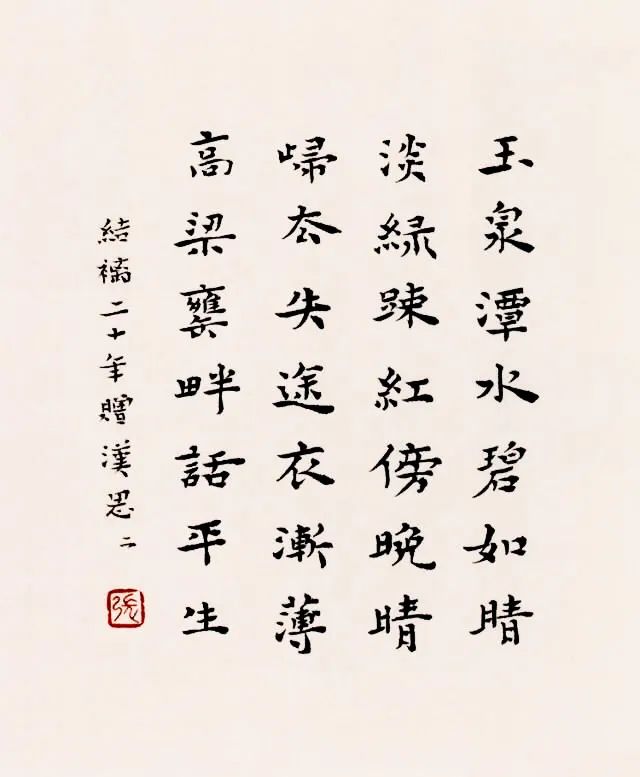 玉泉潭水碧如睛
淡綠踈紅傍晚晴
㱕厺失途衣漸薄
高梁罋畔話平生
結褵二十年贈漢思 二
張